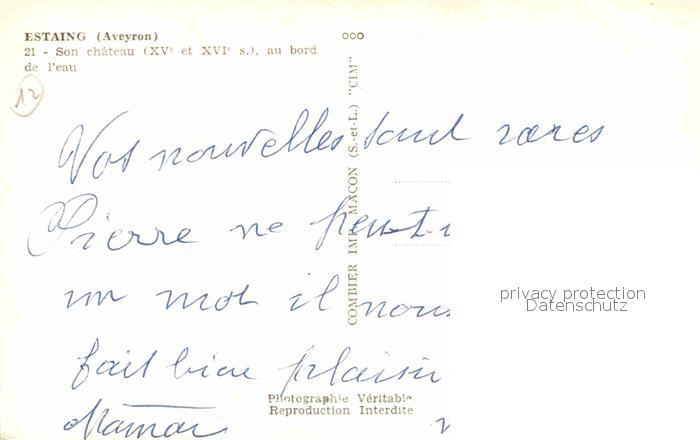 ESTAING (Aveyron)
21 - Son château (XVᵉ et XVIᵉ s.), au bord
de l'eau
12
COMBIER IMP. MACON (S.-et-L.) "CIM"
Vos nouvelles sont rares
Pierre ne peut-i
un mot il nous
fait bien plaisir
Maman
privacy protection
Datenschutz
Photographie Véritable
Reproduction Interdite